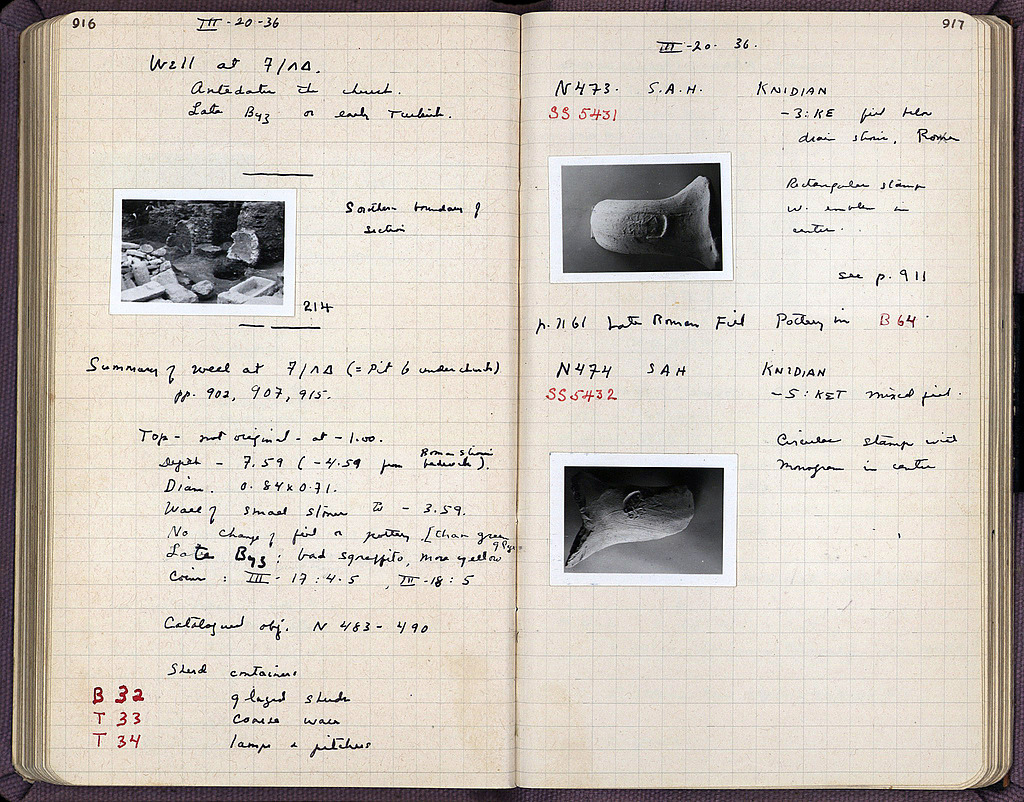 916
III-20-36
Well at 7/ΛΔ.
Antedates the church.
Late Byz or early Turkish.
Southern boundary of
section
214
Summary of well at 7/ΛΔ (= Pit 6 under church)
pp. 902, 907, 915.
Top - not original - at -1.00.
Depth - 7.59 (-4.59 from Roman stoa bedrock).
Diam. 0.84 x 0.71.
Wall of small stones to - 3.59.
No change of fill or pottery. [than green
Late Byz; bad sgraffito, more yellow
Coins: III-17: 4-5, III-18: 5
Catalogued obj. N 483-490
Sherd containers
B 32 glazed sherds
T 33 coarse ware
T 34 lamps & pitchers
917
III-20-36.
N473. S.A.H. KNIDIAN
SS 5431 -3:KE fill below
drain, Roman
Rectangular stamp
w. emblem in
center.
see p. 911
Late Roman Fill Pottery in B 64
N474 SAH KNIDIAN
SS 5432 -5: KET mixed fill.
Circular stamp with
Monogram in centre